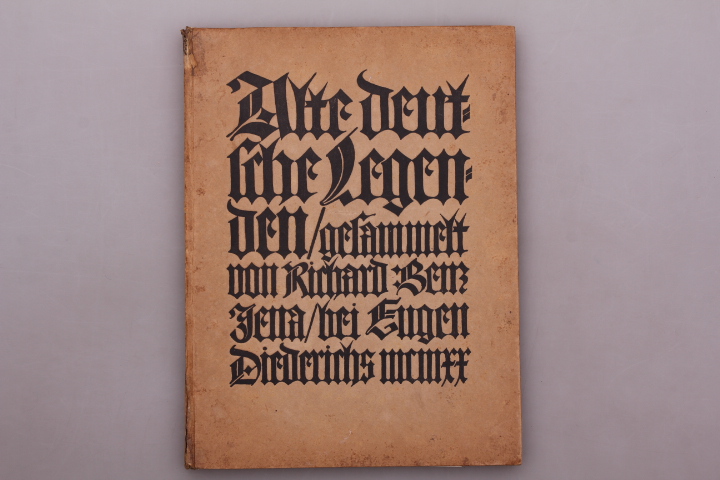 Alte deut-
sche Legen-
den/gesammelt
von Richard Benz
Jena/bei Eugen
Diederichs mcmxx